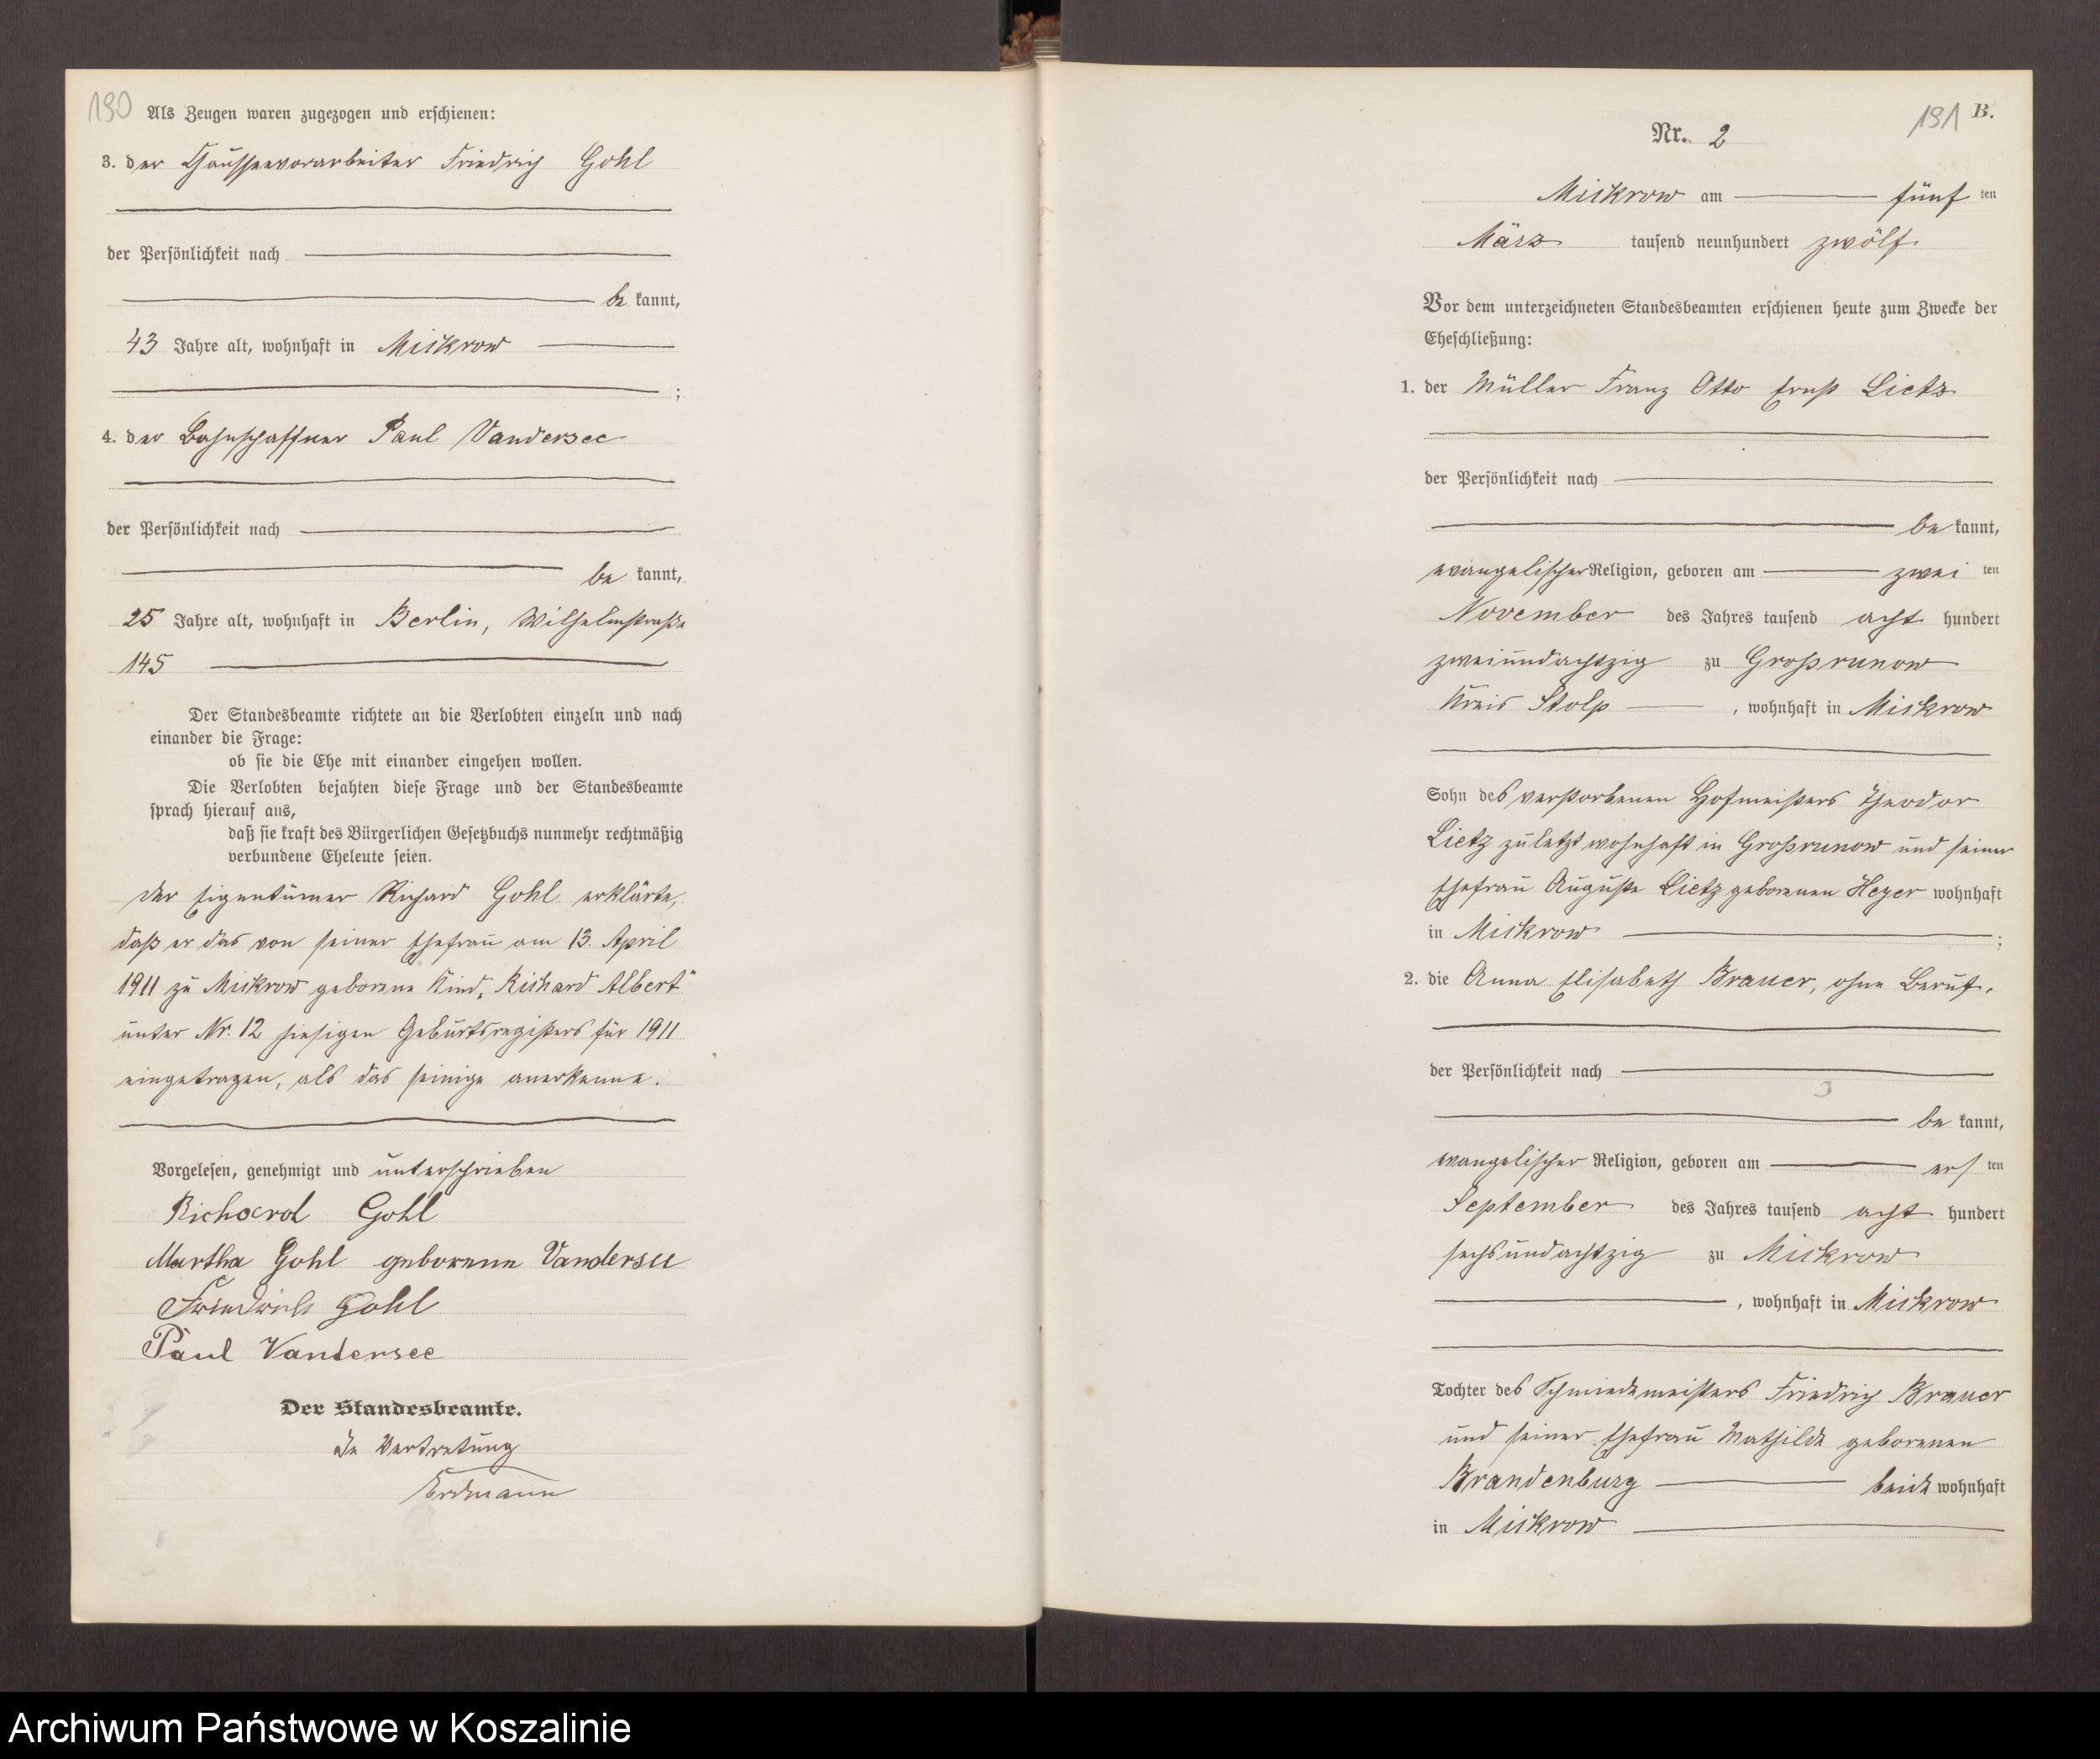 190
Als Zeugen waren zugezogen und erschienen:
3. der Chausseevorarbeiter Friedrich Gohl
der Persönlichkeit nach
be kannt,
43 Jahre alt, wohnhaft in Mickrow
;
4. der Bahnschaffner Paul Vandersee
der Persönlichkeit nach
be kannt,
25 Jahre alt, wohnhaft in Berlin, Wilhelmstraße
145
Der Standesbeamte richtete an die Verlobten einzeln und nach
einander die Frage:
ob sie die Ehe mit einander eingehen wollen.
Die Verlobten bejahten diese Frage und der Standesbeamte
sprach hierauf aus,
daß sie kraft des Bürgerlichen Gesetzbuchs nunmehr rechtmäßig
verbundene Eheleute seien.
Der Eigentümer Richard Gohl erklärte,
daß er das von seiner Ehefrau am 13. April
1911 zu Mickrow geborene Kind „Richard Albert“
unter Nr. 12 hiesigen Geburtsregisters für 1911
eingetragen, als das seinige anerkenne.
Vorgelesen, genehmigt und unterschrieben
Richard Gohl
Martha Gohl geborene Vandersee
Friedrich Gohl
Paul Vandersee
Der Standesbeamte.
In Vertretung
Erdmann
191 B.
Nr. 2
Mickrow am fünf ten
März tausend neunhundert zwölf
Vor dem unterzeichneten Standesbeamten erschienen heute zum Zwecke der
Eheschließung:
1. der Müller Franz Otto Ernst Lietz
der Persönlichkeit nach
be kannt,
evangelischer Religion, geboren am zwei ten
November des Jahres tausend acht hundert
zweiundachtzig zu Großrunow
Kreis Stolp , wohnhaft in Mickrow
Sohn des verstorbenen Hofmeisters Theodor
Lietz zuletzt wohnhaft in Großrunow und seiner
Ehefrau Auguste Lietz geborenen Heyer wohnhaft
in Mickrow ;
2. die Anna Elisabeth Brauer, ohne Beruf,
der Persönlichkeit nach
be kannt,
evangelischer Religion, geboren am ers ten
September des Jahres tausend acht hundert
sechsundachtzig zu Mickrow
, wohnhaft in Mickrow
Tochter des Schmiedemeisters Friedrich Brauer
und seiner Ehefrau Mathilde geborenen
Brandenburg beide wohnhaft
in Mickrow
Archiwum Państwowe w Koszalinie